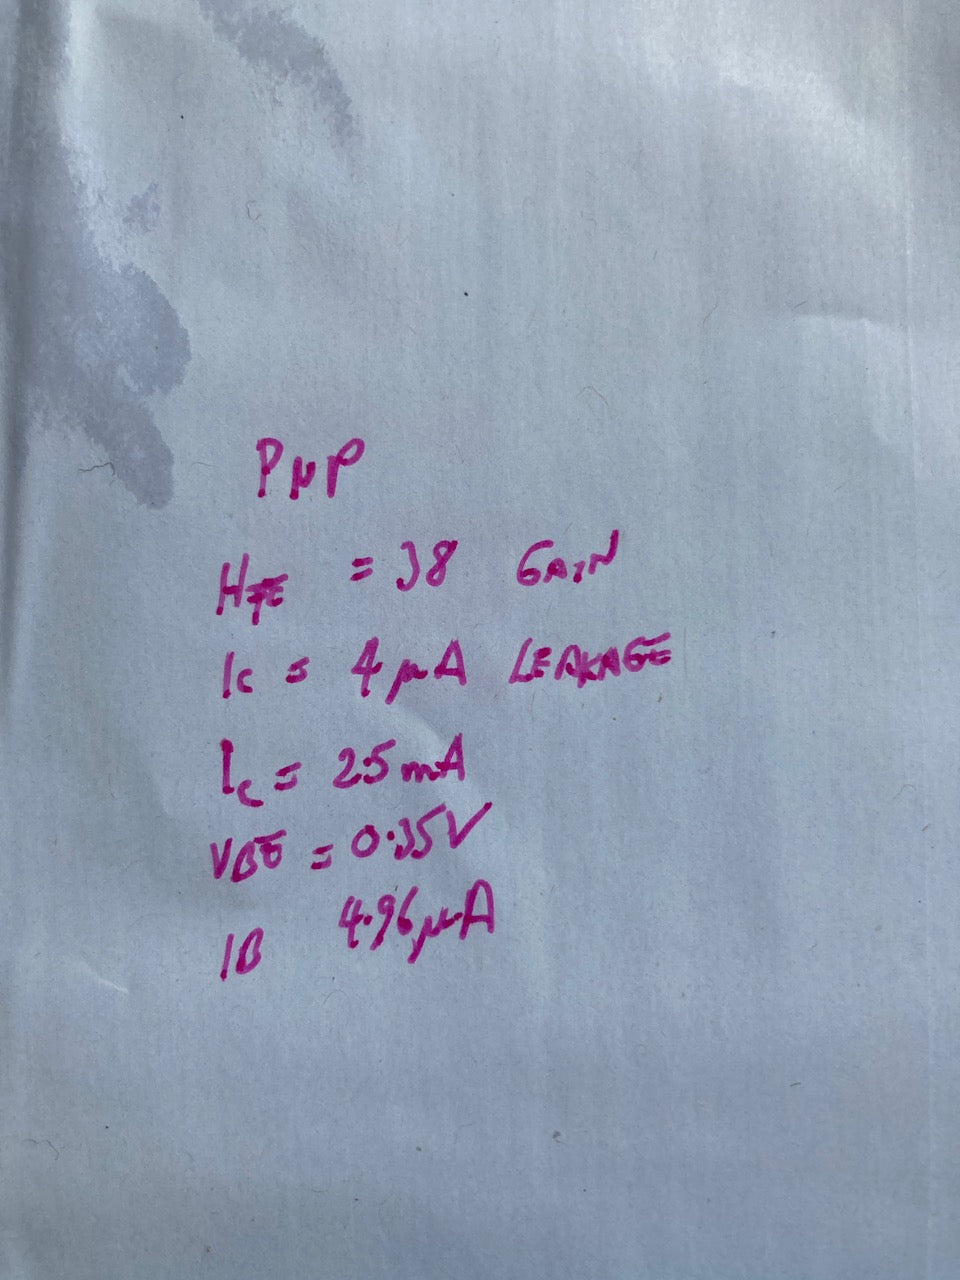 PNP
HFE = 38 GAIN
Ic = 4 μA LEAKAGE
Ic = 2.5 mA
VBE = 0.35V
IB 4.96 μA